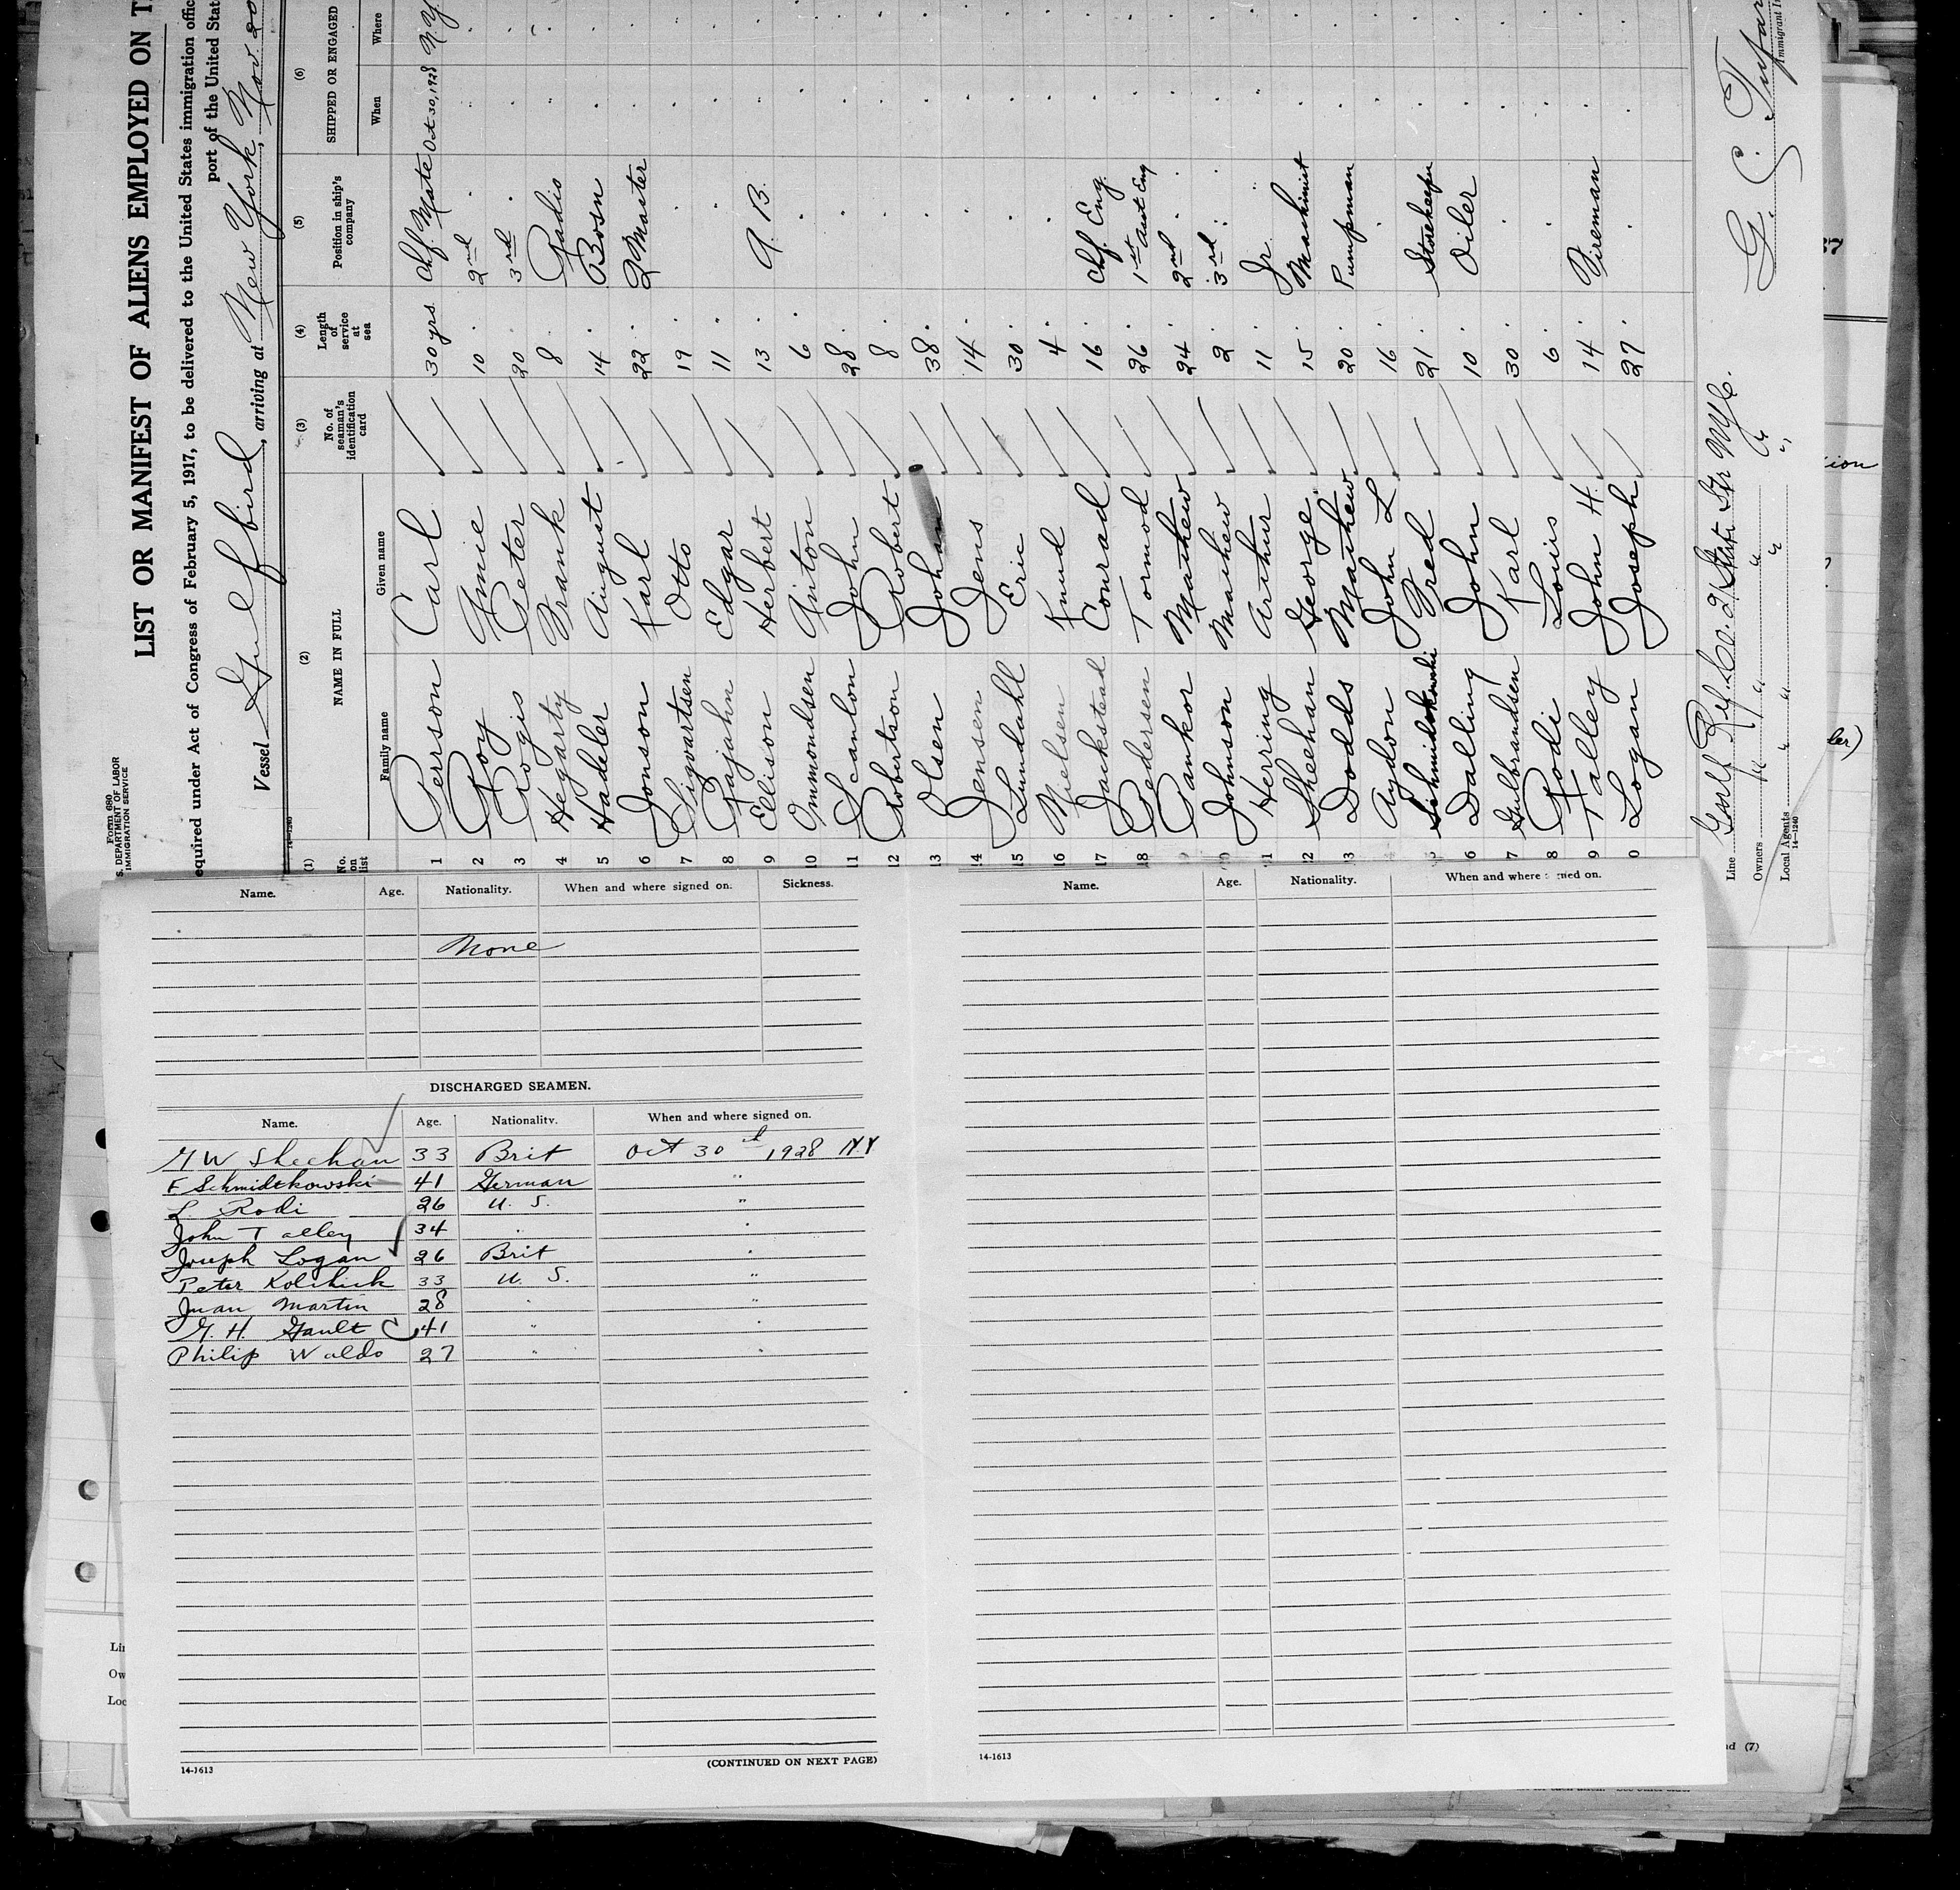 Form 680
S. DEPARTMENT OF LABOR
IMMIGRATION SERVICE
LIST OR MANIFEST OF ALIENS EMPLOYED ON T
equired under Act of Congress of February 5, 1917, to be delivered to the United States immigration offic
port of the United Stat
Vessel Gulfbird, arriving at New York, Nov. 20
(1) (2) (3) (4) (5) (6)
No. on list NAME IN FULL No. of seaman's identification card Length of service at sea Position in ship's company SHIPPED OR ENGAGED
Family name Given name When Where
1 Persson Carl 30 yrs Chf. Mate Oct 30, 1928 N.Y
2 Roy Amie 10 " 2nd "
3 Rogis Peter 20 " 3rd
4 Hegarty Frank 8 " Radio
5 Hadeler August 14 " Bosn
6 Jonson Karl 22 " Q Master
7 Sigvartsen Otto 19 "
8 Pajahn Edgar 11 "
9 Ellison Herbert 13 " A. B.
10 Ommondsen Anton 6 "
11 Scanlon John 28 "
12 Robertson Robert 8 "
13 Olsen Johan 38 "
14 Jensen Jens 14 "
15 Lundahl Eric 30 "
16 Nielsen Knud 4 "
17 Jacksteadt Conrad 16 " Chf. Eng.
18 Pedersen Tormod 26 " 1st Asst Eng
9 Pankor Mathew 24 " 2nd "
20 Johnson Mathew 2 " 3rd "
21 Herring Arthur 11 " Jr. "
22 Sheehan George 15 " Machinist
23 Dodds Mathew 20 " Pumpman
Aydon John L 16 "
5 Schmidtkowski Fred 21 " Storekeeper
6 Dalling John 10 " Oiler
7 Gulbrandsen Karl 30 "
8 Rodi Louis 6 "
9 Talley John H. 14 " Fireman
0 Logan Joseph 27 "
Line Gulf Ref. Co. 21 State Str NYC.
Owners " " " "
Local Agents " " " "
14-1240
G. C.
Immigrant In
Name. Age. Nationality. When and where signed on. Sickness.
None
DISCHARGED SEAMEN.
Name. Age. Nationality. When and where signed on.
G W Sheehan 33 Brit Oct 30 st 1928 N.Y
F Schmidtkowski 41 German "
L. Rodi 26 U. S. "
John Talley 34 " "
Joseph Logan 26 Brit "
Peter Kolchick 33 U. S. "
Juan Martin 28 " "
G. H. Gault 41 " "
Philip Waldo 27 " "
14-1613 (CONTINUED ON NEXT PAGE)
Name. Age. Nationality. When and where signed on.
14-1613
ion
der)
Lin
Ow
Loc
nd (7)